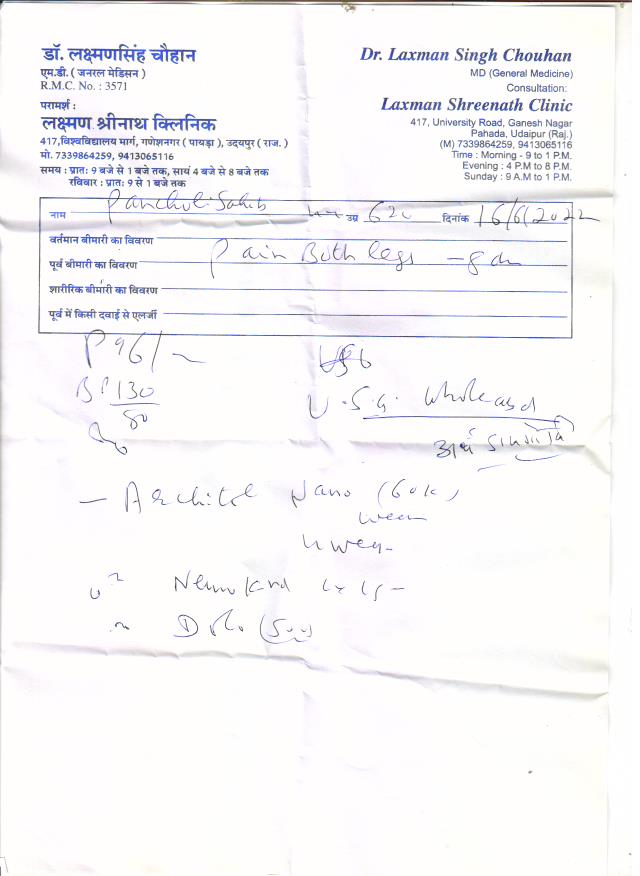 डॉ. लक्ष्मणसिंह चौहान
एम.डी. ( जनरल मेडिसन )
R.M.C. No. : 3571
परामर्श :
लक्ष्मण श्रीनाथ क्लिनिक
417,विश्वविद्यालय मार्ग, गणेशनगर ( पायड़ा ), उदयपुर ( राज. )
मो. 7339864259, 9413065116
समय : प्रातः 9 बजे से 1 बजे तक, सायं 4 बजे से 8 बजे तक
रविवार : प्रातः 9 से 1 बजे तक
Dr. Laxman Singh Chouhan
MD (General Medicine)
Consultation:
Laxman Shreenath Clinic
417, University Road, Ganesh Nagar
Pahada, Udaipur (Raj.)
(M) 7339864259, 9413065116
Time : Morning - 9 to 1 P.M.
Evening : 4 P.M to 8 P.M.
Sunday : 9 A.M to 1 P.M.
नाम Pancholi Sahib उम्र 62 दिनांक 16/6/2022
वर्तमान बीमारी का विवरण Pain Both legs
पूर्व बीमारी का विवरण
शारीरिक बीमारी का विवरण
पूर्व में किसी दवाई से एलर्जी
P 96/
BP 130/80
U.S.G. Whole abd
- Architol Nano (60k)